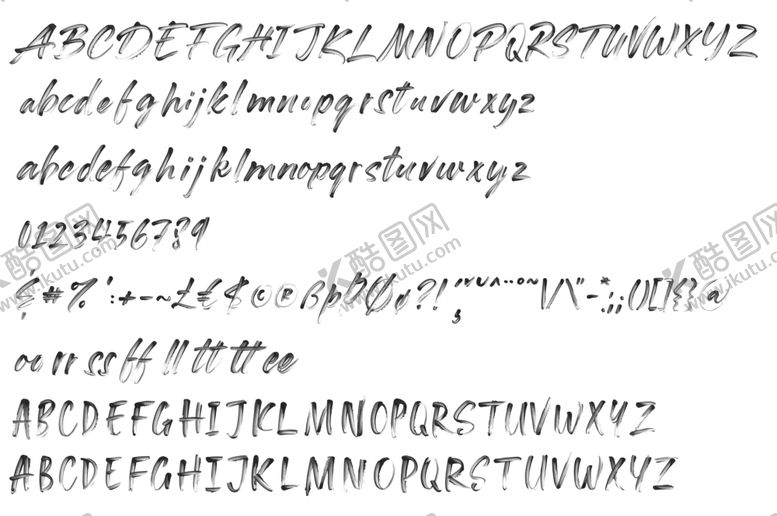 ABCDEFGHIJKLMNOPQRSTUVWXYZ
abcdefghijklmnopqrstuvwxyz
abcdefghijklmnopqrstuvwxyz
0123456789
&#%':+-~£€$©®ßþÞØø?!,´˝ˇ˘^¨°~\/\"-*:;,()[]{}@
oo rr ss ff ll tt tt ee
ABCDEFGHIJKLMNOPQRSTUVWXYZ
ABCDEFGHIJKLMNOPQRSTUVWXYZ
酷图网
www.ikutu.com
酷图网
www.ikutu.com
酷图网
www.ikutu.com